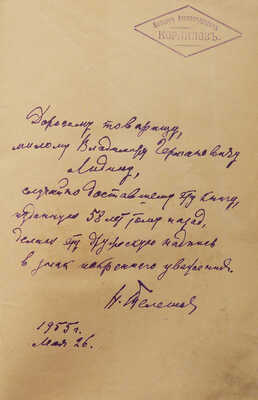 КОРНИЛОВЪ.
Дорогому товарищу,
милому Владимиру Германовичу
Лидину,
случайно доставшему эту книгу,
изданную 53 лет тому назад,
делаю эту дружескую надпись
в знак искреннего уважения.
Н. Телешов
1955 г.
Мая 26.